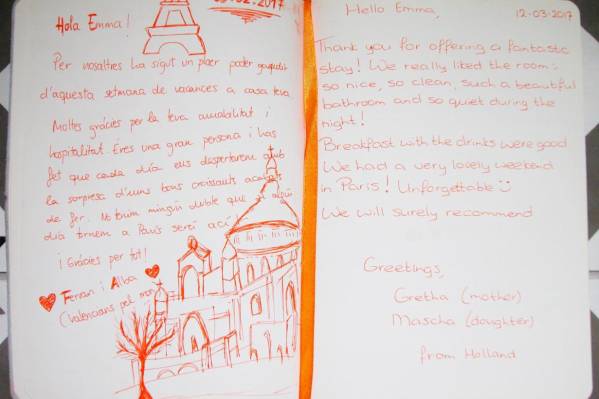 03.02.2017
Hola Emma!
Per nosaltres ha sigut un plaer poder gaudir
d'aquesta setmana de vacances a casa teva
Moltes gràcies per la teva amabilitat i
hospitalitat. Eres una gran persona i has
fet que cada dia ens despertarem amb
la sorpresa d'uns bons croissants acabats
de fer. No tenim ningún dubte que si algún
dia tornem a París serà ací!
¡ Gràcies per tot!
Ferran i Alba
(Valencians pel mon)
Hello Emma,
12-03-2017
Thank you for offering a fantastic
stay! We really liked the room:
so nice, so clean, such a beautiful
bathroom and so quiet during the
night!
Breakfast with the drinks were good
We had a very lovely weekend
in Paris! Unforgettable
We will surely recommend
Greetings,
Gretha (mother)
Mascha (daughter)
from Holland